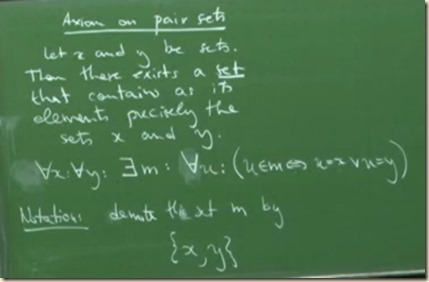 Axiom on pair sets
Let x and y be sets.
Then there exists a set
that contains as its
elements precisely the
sets x and y.
∀x: ∀y: ∃m: ∀u: (u∈m ⇔ u=x ∨ u=y)
Notation: denote the set m by
{x,y}